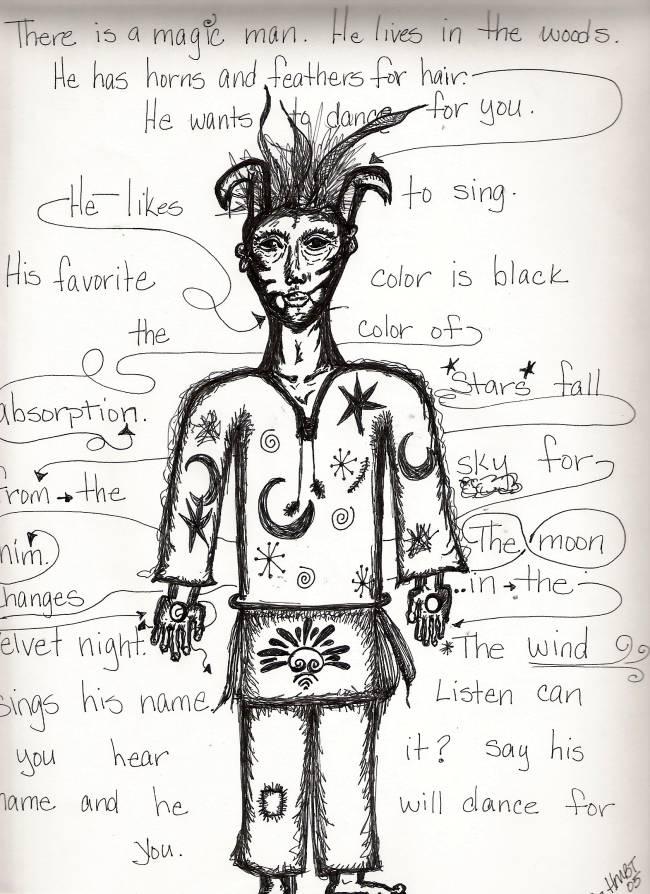 There is a magic man. He lives in the woods.
He has horns and feathers for hair.
He wants to dance for you.
He likes to sing.
His favorite color is black
the color of
absorption. Stars fall
from the sky for
him. The moon
changes ..in the
velvet night. The wind
sings his name. Listen can
you hear it? say his
name and he will dance for
you.
HMBT
05